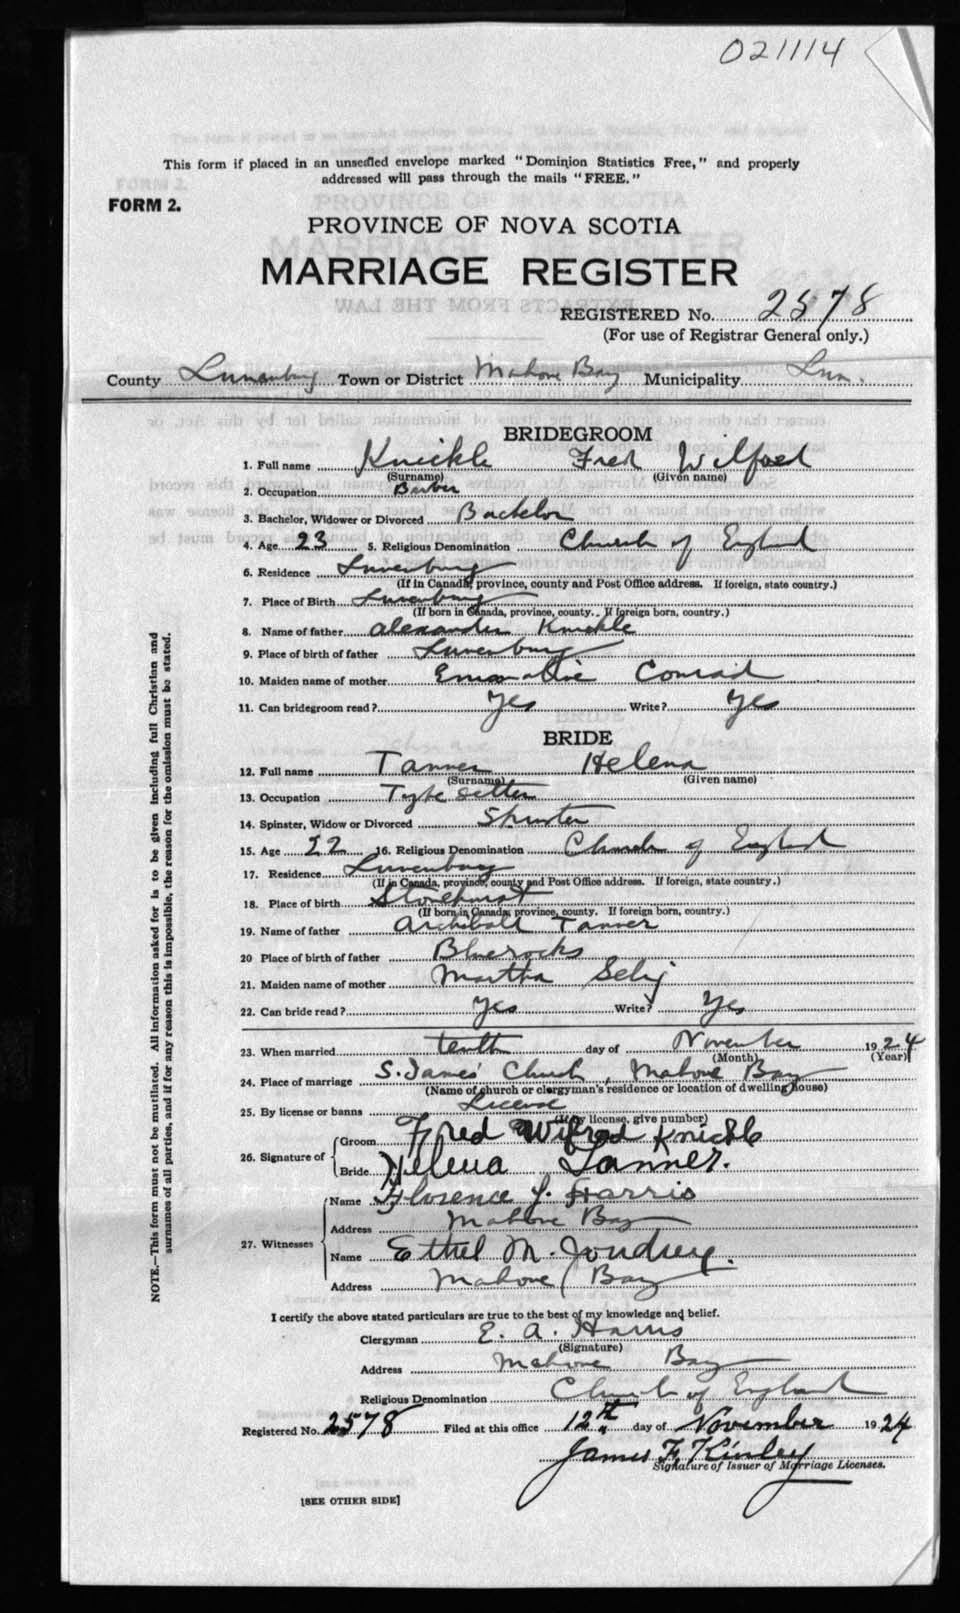 021114
This form if placed in an unsealed envelope marked "Dominion Statistics Free," and properly
addressed will pass through the mails "FREE."
FORM 2.
PROVINCE OF NOVA SCOTIA
MARRIAGE REGISTER
REGISTERED No. 2578
(For use of Registrar General only.)
County Lunenburg Town or District Mahone Bay Municipality Lun.
BRIDEGROOM
1. Full name Knickle Fred Wilfred
(Surname) (Given name)
2. Occupation Barber
3. Bachelor, Widower or Divorced Bachelor
4. Age 23 5. Religious Denomination Church of England
6. Residence Lunenburg
(If in Canada, province, county and Post Office address. If foreign, state country.)
7. Place of Birth Lunenburg
(If born in Canada, province, county. If foreign born, country.)
8. Name of father Alexander Knickle
9. Place of birth of father Lunenburg
10. Maiden name of mother Conrad
11. Can bridegroom read? Yes Write? Yes
BRIDE
12. Full name Tanner Helena
(Surname) (Given name)
13. Occupation Type setter
14. Spinster, Widow or Divorced Spinster
15. Age 22 16. Religious Denomination Church of England
17. Residence Lunenburg
(If in Canada, province, county and Post Office address. If foreign, state country.)
18. Place of birth Stonehurst
(If born in Canada, province, county. If foreign born, country.)
19. Name of father Archibald Tanner
20 Place of birth of father Bluerocks
21. Maiden name of mother Martha Selig
22. Can bride read? Yes Write? Yes
23. When married tenth day of November 1924
(Month) (Year)
24. Place of marriage S. James' Church, Mahone Bay
(Name of church or clergyman's residence or location of dwelling house)
25. By license or banns License
(If by license, give number)
26. Signature of Groom Fred Wilfred Knickle
Bride Helena Tanner.
27. Witnesses Name Florence J. Harris
Address Mahone Bay
Name Ethel M. Joudrey.
Address Mahone Bay
I certify the above stated particulars are true to the best of my knowledge and belief.
Clergyman E. A. Harris
(Signature)
Address Mahone Bay
Religious Denomination Church of England
Registered No. 2578 Filed at this office 12th day of November 1924
James F. Kinley
Signature of Issuer of Marriage Licenses.
[SEE OTHER SIDE]
NOTE.—This form must not be mutilated. All information asked for is to be given including full Christian and
surnames of all parties, and if for any reason this is impossible, the reason for the omission must be stated.